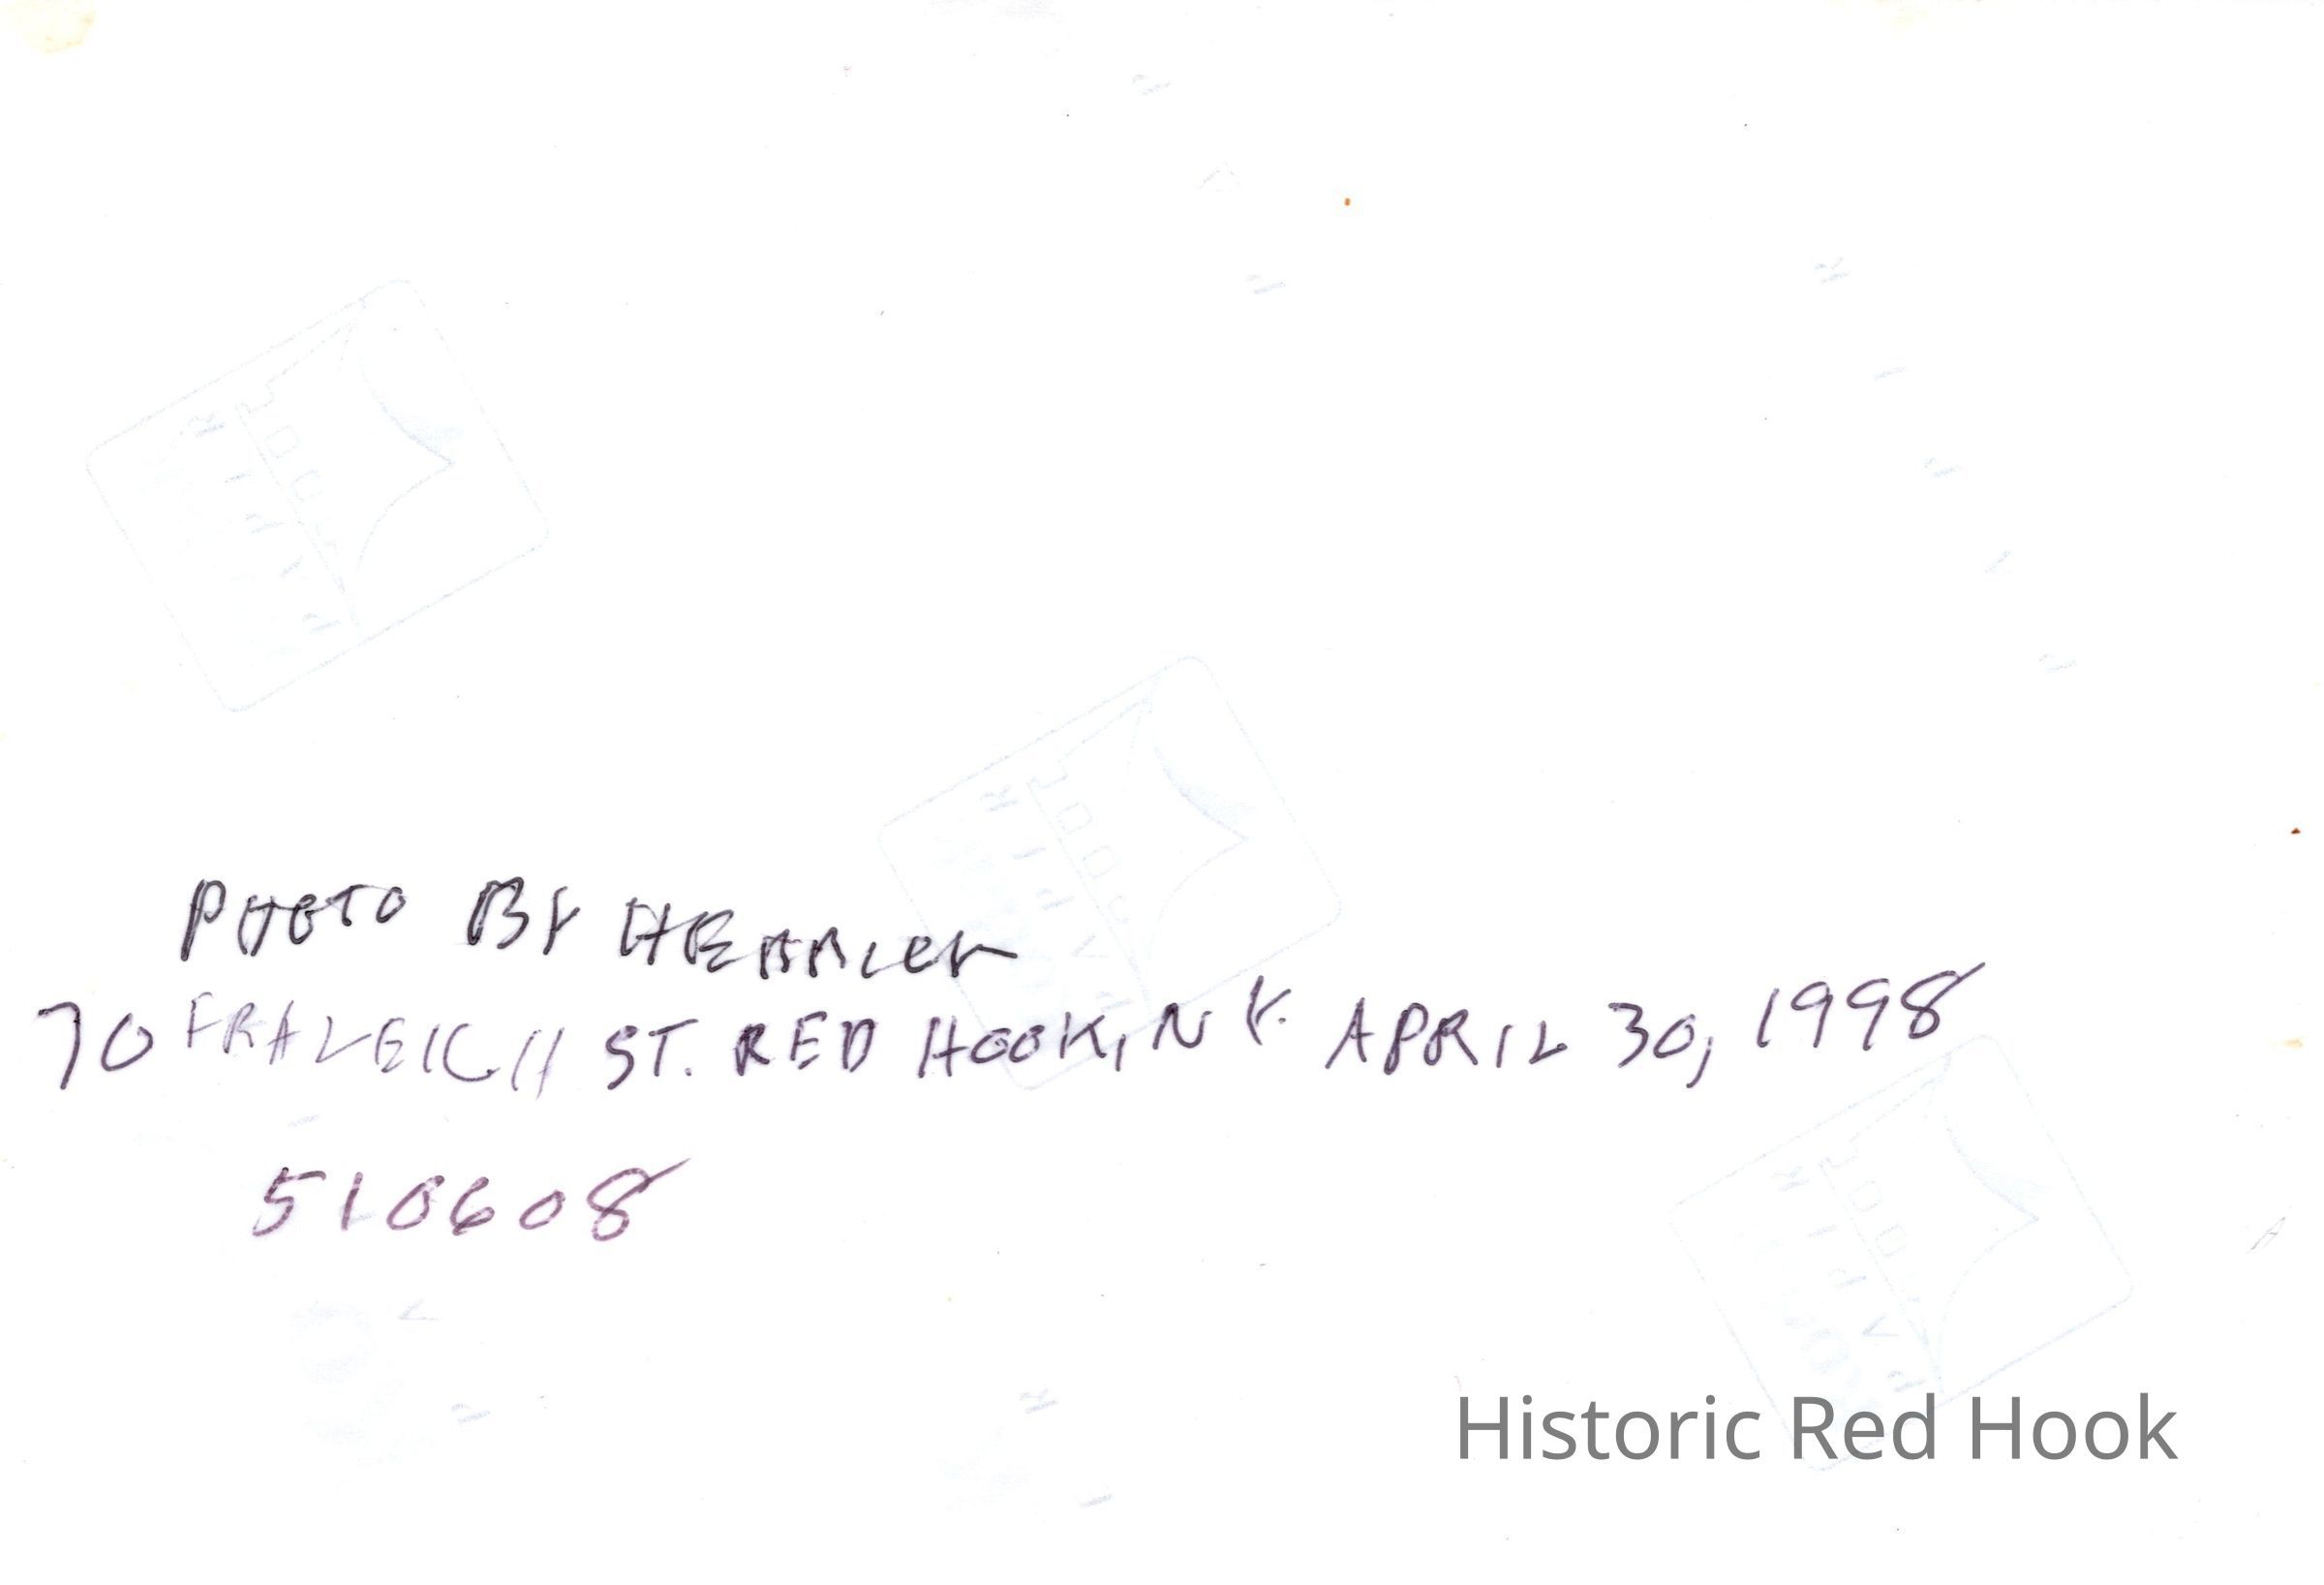 PHOTO BY
70 FRALEICH ST. RED HOOK, N Y. APRIL 30, 1998
510608
Historic Red Hook